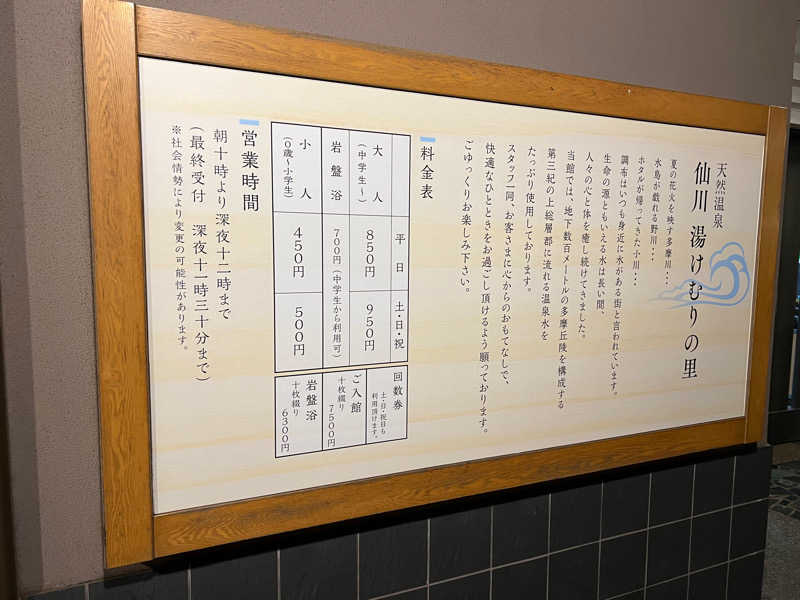 天然温泉
仙川 湯けむりの里
夏の花火を映す多摩川・・・
水鳥が戯れる野川・・・
ホタルが帰ってきた小川・・・
調布はいつも身近に水がある街と言われています。
生命の源ともいえる水は長い間、
人々の心と体を癒し続けてきました。
当館では、地下数百メートルの多摩丘陵を構成する
第三紀の上総層郡に流れる温泉水を
たっぷり使用しております。
スタッフ一同、お客さまに心からのおもてなしで、
快適なひとときをお過ごし頂けるよう願っております。
ごゆっくりお楽しみ下さい。
料金表
平日
土・日・祝
大人
(中学生~)
850円
950円
岩盤浴
700円(中学生から利用可)
小人
(0歳~小学生)
450円
500円
回数券
土・日・祝日も
利用頂けます。
ご入館
十枚綴り
7500円
岩盤浴
十枚綴り
6300円
営業時間
朝十時より深夜十二時まで
(最終受付 深夜十一時三十分まで)
※社会情勢により変更の可能性があります。